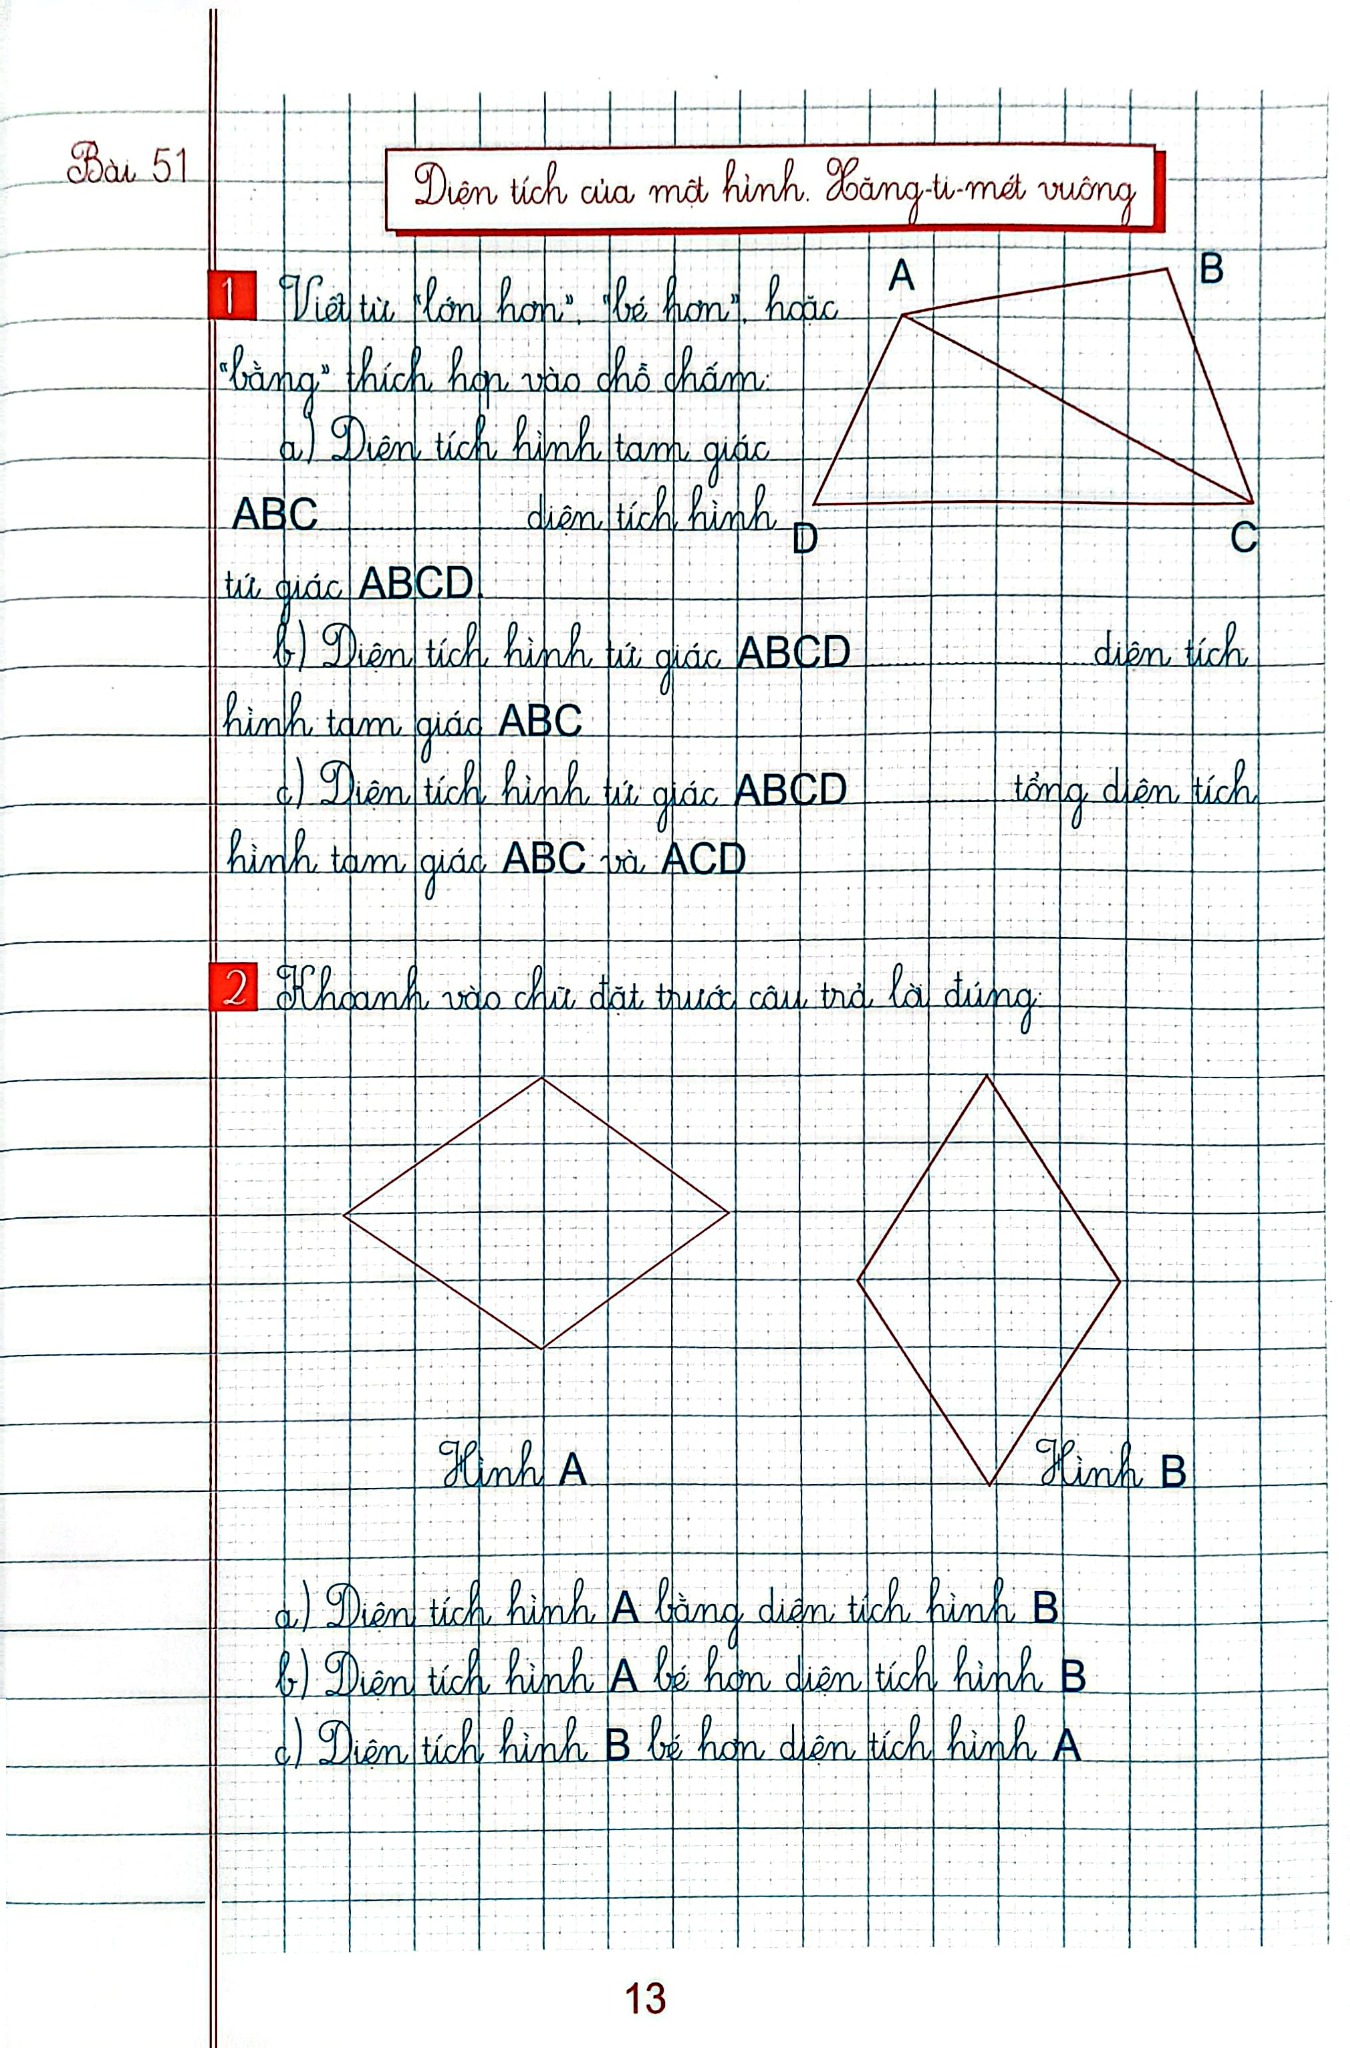 Bài 51
Diện tích của một hình. Xăng-ti-mét vuông
1 Viết từ “lớn hơn”, “bé hơn”, hoặc
“bằng” thích hợp vào chỗ chấm:
A
B
a) Diện tích hình tam giác
ABC ............ diện tích hình
D
C
tứ giác ABCD.
b) Diện tích hình tứ giác ABCD ............ diện tích
hình tam giác ABC
c) Diện tích hình tứ giác ABCD ............ tổng diện tích
hình tam giác ABC và ACD
2 Khoanh vào chữ đặt trước câu trả lời đúng:
Hình A
Hình B
a) Diện tích hình A bằng diện tích hình B
b) Diện tích hình A bé hơn diện tích hình B
c) Diện tích hình B bé hơn diện tích hình A
13